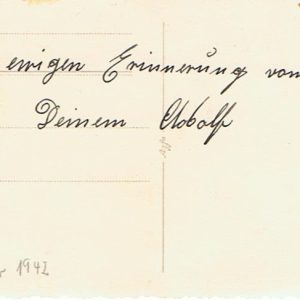 ewigen Erinnerung von
Deinem Adolf
1942